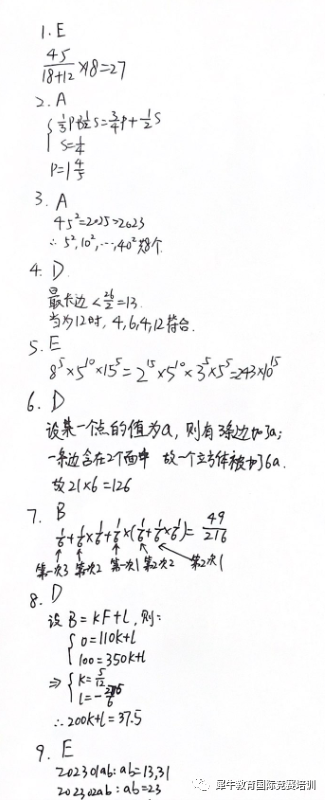 1. E
45/(18+12) ×18=27
2. A
{ 1/3P+1/2S=3/4P+1/2S
S=1/4
P=1 4/5
3. A
45²=2025>2023
∴ 5²,10²,…,40²共8个
4. D.
最长边<26/2=13.
当为12时，4,6,4,12符合.
5. E
8⁵×5¹⁰×15⁵=2¹⁵×5¹⁰×3⁵×5⁵=243×10¹⁵
6. D
设某一个点的值为a，则有3条边加3a；
一条边含在2个面中 故一个立方体被加6a.
故21×6=126
7. B
1/6+1/6×1/6+1/6×(1/6+1/6×1/6)=49/216
第一次3 第一次2 第一次1 第2次2 第2次1
8. D
设B=kF+l，则：
{ 0=110k+l
100=350k+l
⇒ { k=5/12
∴200k+l=37.5
9. E
202301ab：ab=13,31
202302ab：ab=23
犀牛教育国际竞赛培训